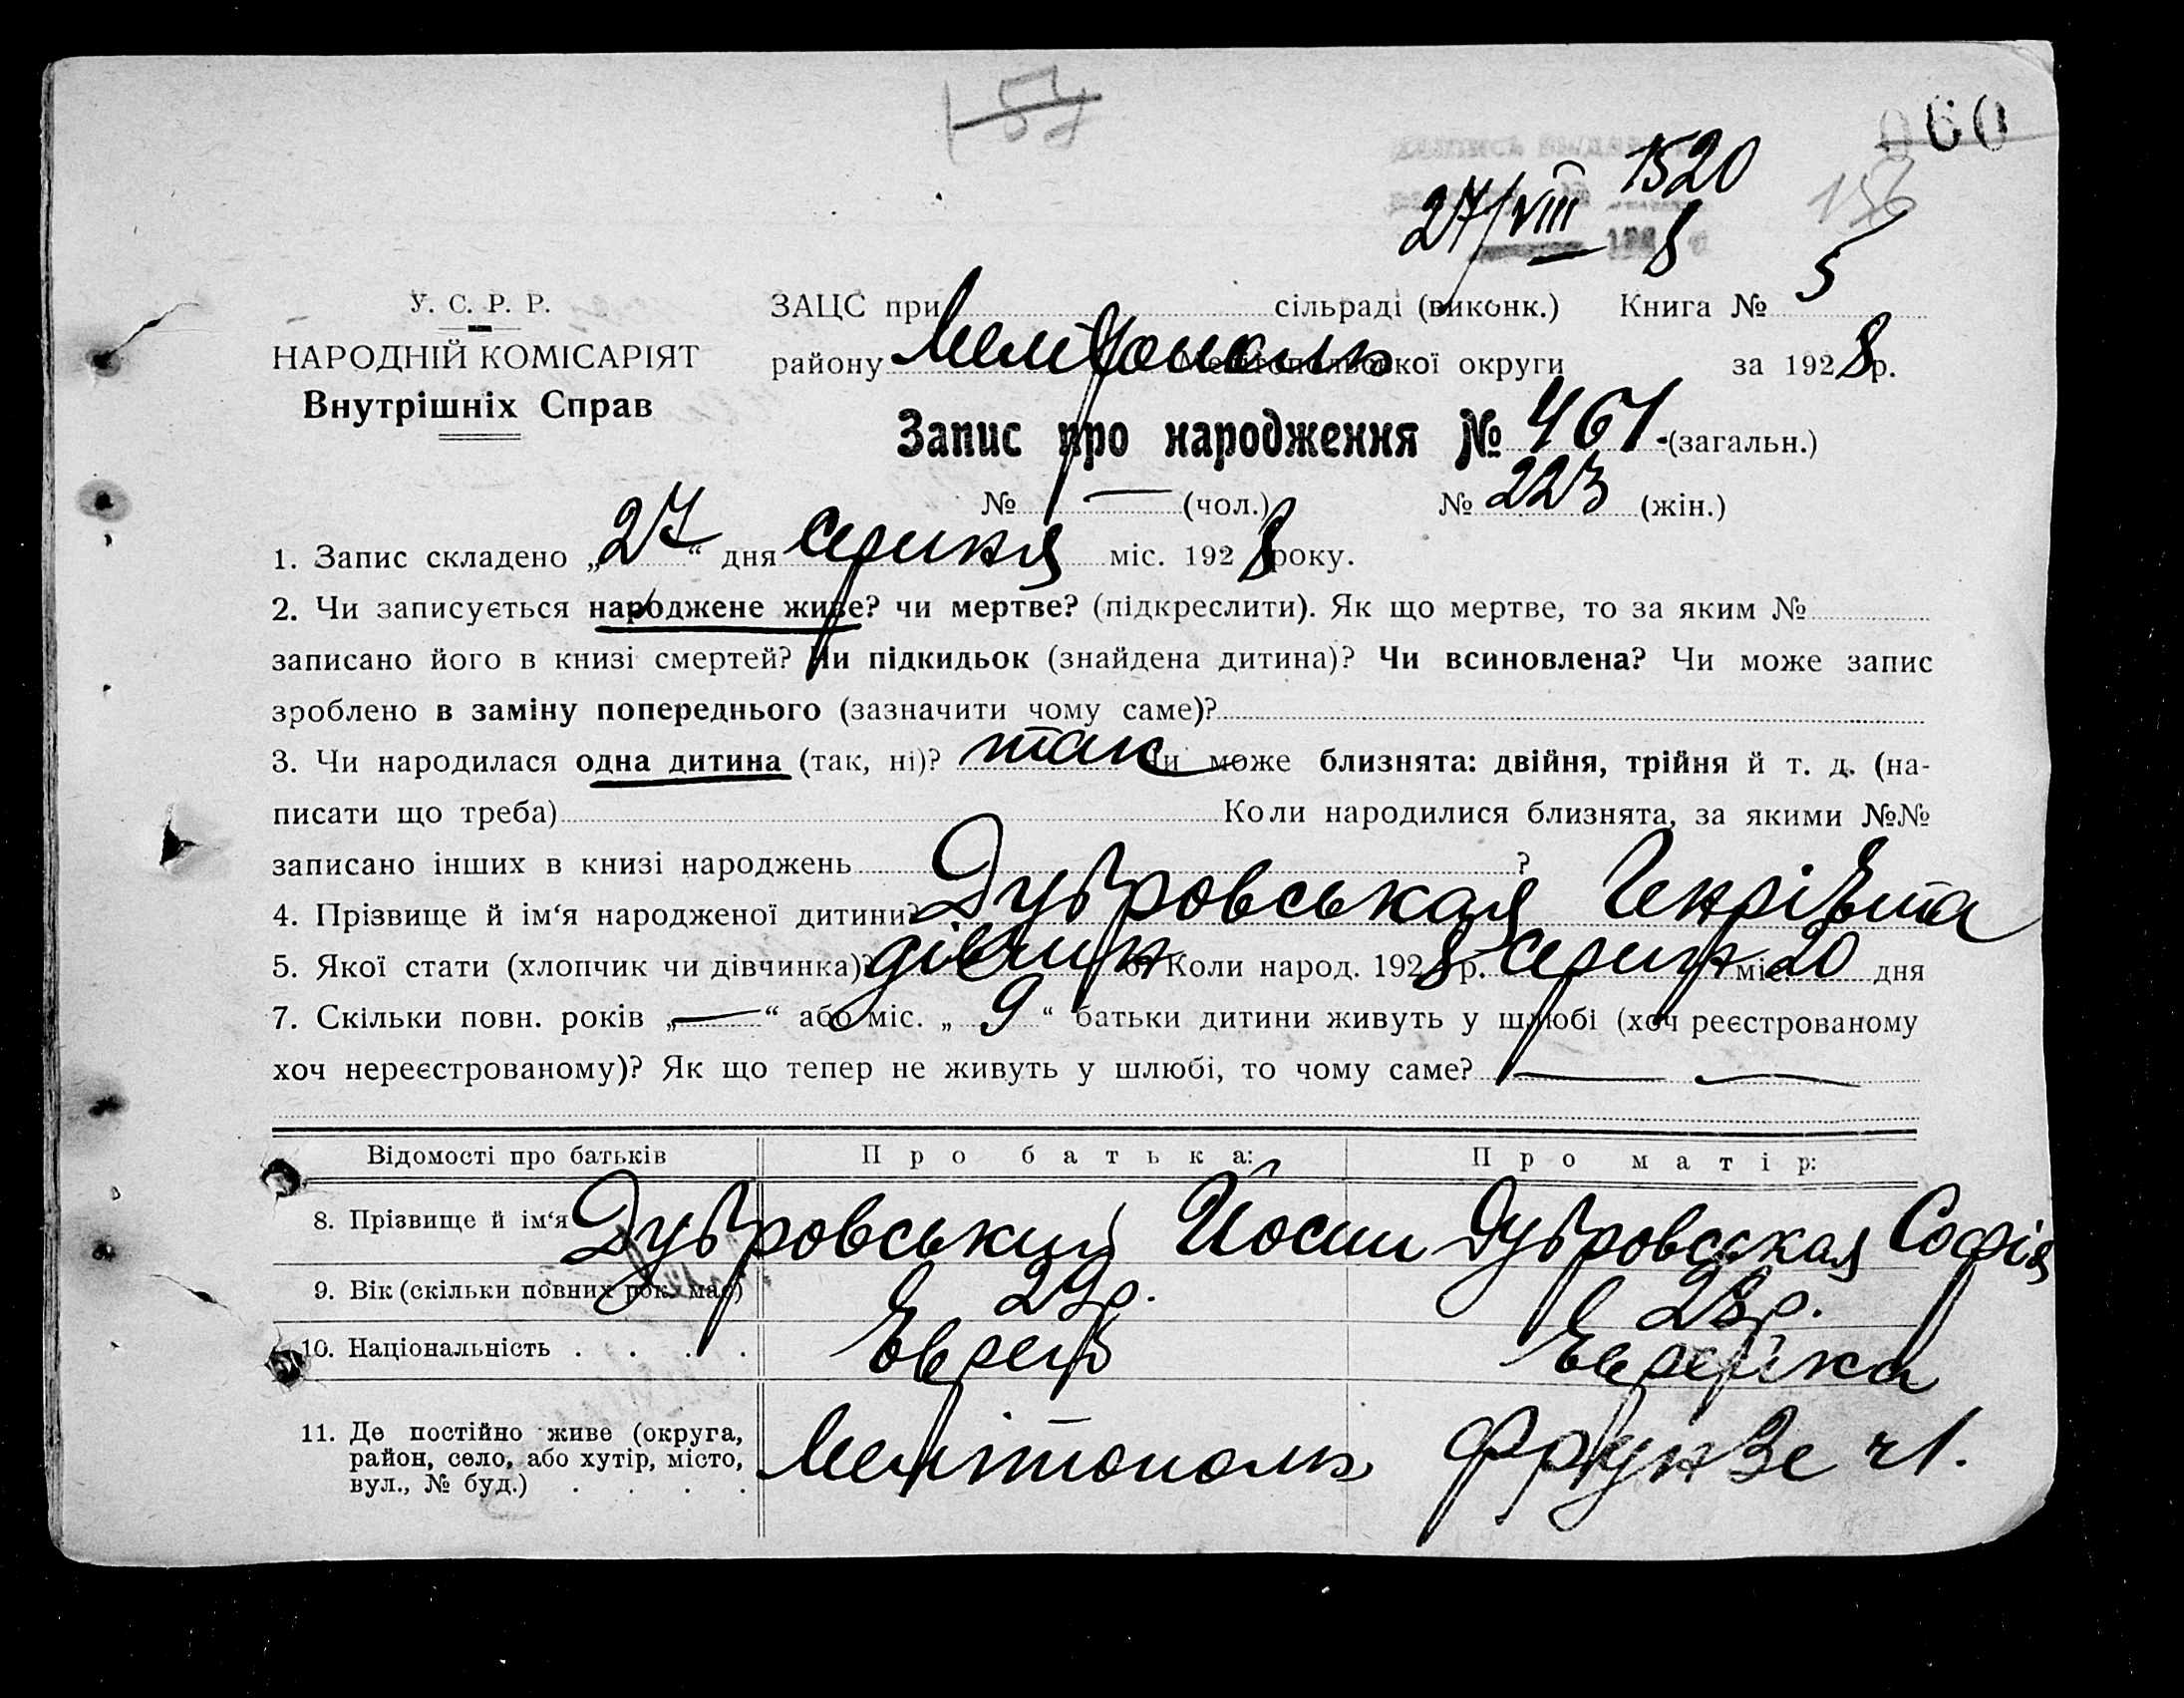 060
1520
156
27/VIII 8
У. С. Р. Р.
НАРОДНІЙ КОМІСАРІЯТ
Внутрішніх Справ
ЗАЦС при сільраді (виконк.) Книга № 5
району Мелітополь Мелітопольської округи за 1928р.
Запис про народження № 461 (загальн.)
№ — (чол.) № 223 (жін.)
1. Запис складено „27“ дня серпня міс. 1928 року.
2. Чи записується народжене живе? чи мертве? (підкреслити). Як що мертве, то за яким №
записано його в книзі смертей? Чи підкидьок (знайдена дитина)? Чи всиновлена? Чи може запис
зроблено в заміну попереднього (зазначити чому саме)?
3. Чи народилася одна дитина (так, ні)? так Чи може близнята: двійня, трійня й т. д. (на-
писати що треба) Коли народилися близнята, за якими №№
записано інших в книзі народжень ?
4. Прізвище й ім‘я народженої дитини? Дубровськая Генріета
5. Якої стати (хлопчик чи дівчинка)? дівчин 6. Коли народ. 1928 р. серпн міс. 20 дня
7. Скільки повн. років „—“ або міс. „9“ батьки дитини живуть у шлюбі (хоч реєстрованому
хоч нереєстрованому)? Як що тепер не живуть у шлюбі, то чому саме? — —
Відомості про батьків Про батька: Про матір:
8. Прізвище й ім‘я Дубровський Йосип Дубровськая Софія
9. Вік (скільки повних рок. має) 29р. 28р.
10. Національність . . . . Еврей Еврейка
11. Де постійно живе (округа,
район, село, або хутір, місто,
вул., № буд.) . . . . Мелітополь Фрунзе ч1.